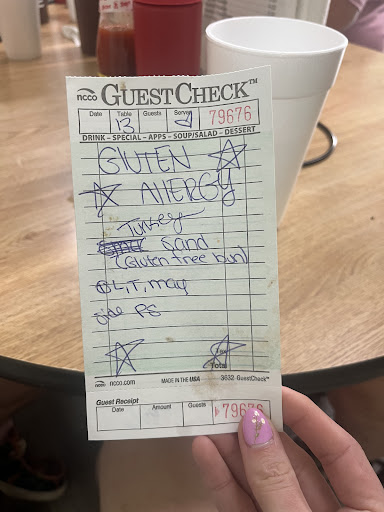 ncco GUESTCHECK™
Date Table Guests Server 79676
13
DRINK – SPECIAL – APPS – SOUP/SALAD – DESSERT
GLUTEN
AllERGY
Turkey
Sand
(Gluten free bun)
L, T, may
side FS
Tax
Total
ncco.com MADE IN THE USA 3632 GuestCheck™
Guest Receipt
Date Amount Guests 79676